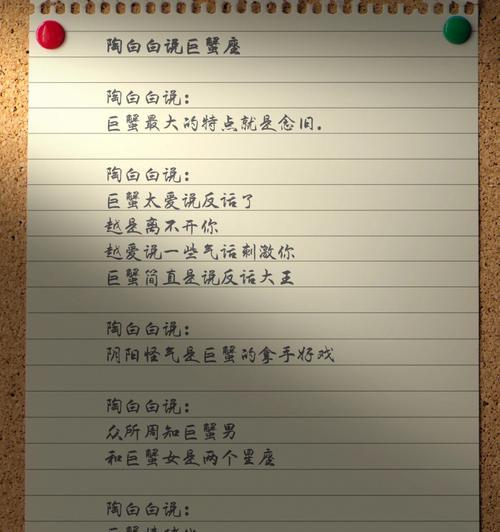 陶白白说巨蟹座
陶白白说：
巨蟹最大的特点就是念旧.
陶白白说：
巨蟹太爱说反话了
越是离不开你
越爱说一些气话刺激你
巨蟹简直是说反话大王
陶白白说：
阴阳怪气是巨蟹的拿手好戏
陶白白说：
众所周知巨蟹男
和巨蟹女是两个星座
陶白白说：